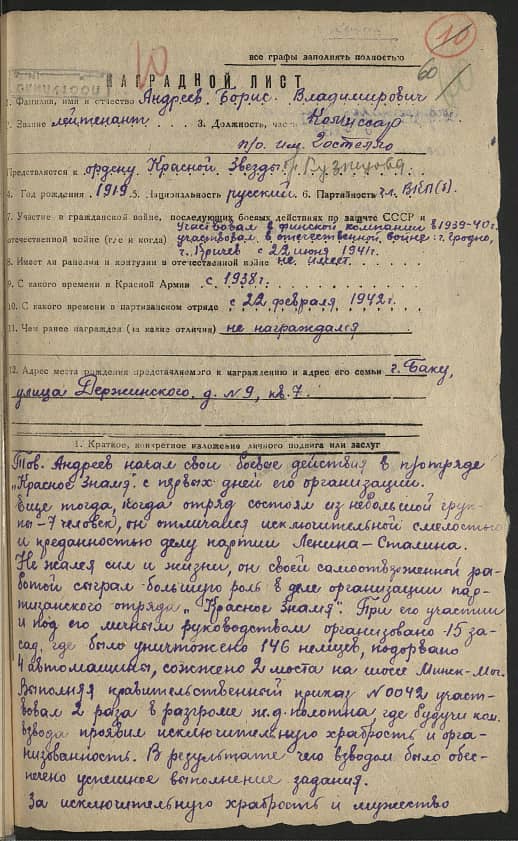 10
10
все графы заполнять полностью
60
НАГРАДНОЙ ЛИСТ
1. Фамилия, имя и отчество Андреев Борис Владимирович
2. Звание лейтенант 3. Должность, часть Комиссар
п/о им. Гостелло
Представляется к ордену Красной Звезды
4. Год рождения 1919 5. Национальность русский 6. Партийность чл. ВКП(б)
7. Участие в гражданской войне, последующих боевых действиях по защите СССР и
участвовал в финской компании в 1939-40 г.
отечественной войне (где и когда) участвовал в отечественной войне: г. Гродно,
с 22 июня 1941 г.
8. Имеет ли ранения и контузии в отечественной войне не имеет
9. С какого времени в Красной Армии с 1938 г.
10. С какого времени в партизанском отряде с 22 февраля 1942 г.
11. Чем ранее награжден (за какие отличия) не награждался
12. Адрес места рождения представляемого к награждению и адрес его семьи г. Баку,
улица Держинского, д. №9, кв. 7.
1. Краткое, конкретное изложение личного подвига или заслуг
Тов. Андреев начал свои боевые действия в п/отряде
„Красное Знамя" с первых дней его организации.
Еще тогда, когда отряд состоял из небольшой груп-
пы - 7 человек, он отличался исключительной смелостью
и преданностью делу партии Ленина-Сталина.
Не жалея сил и жизни, он своей самоотверженной ра-
ботой сыграл большую роль в деле организации пар-
тизанского отряда „Красное Знамя". При его участии
и под его личным руководством организовано 15 за-
сад, где было уничтожено 146 немцев, подорвано
4 автомашины, сожжено 2 моста на шоссе Минск-Мог.
Выполняя правительственный приказ №0042 участ-
вовал 2 раза в разгроме ж.д. полотна где будучи ком.
взвода проявил исключительную храбрость и орга-
низованность. В результате чего взводом было обес-
печено успешное выполнение задания.
За исключительную храбрость и мужество